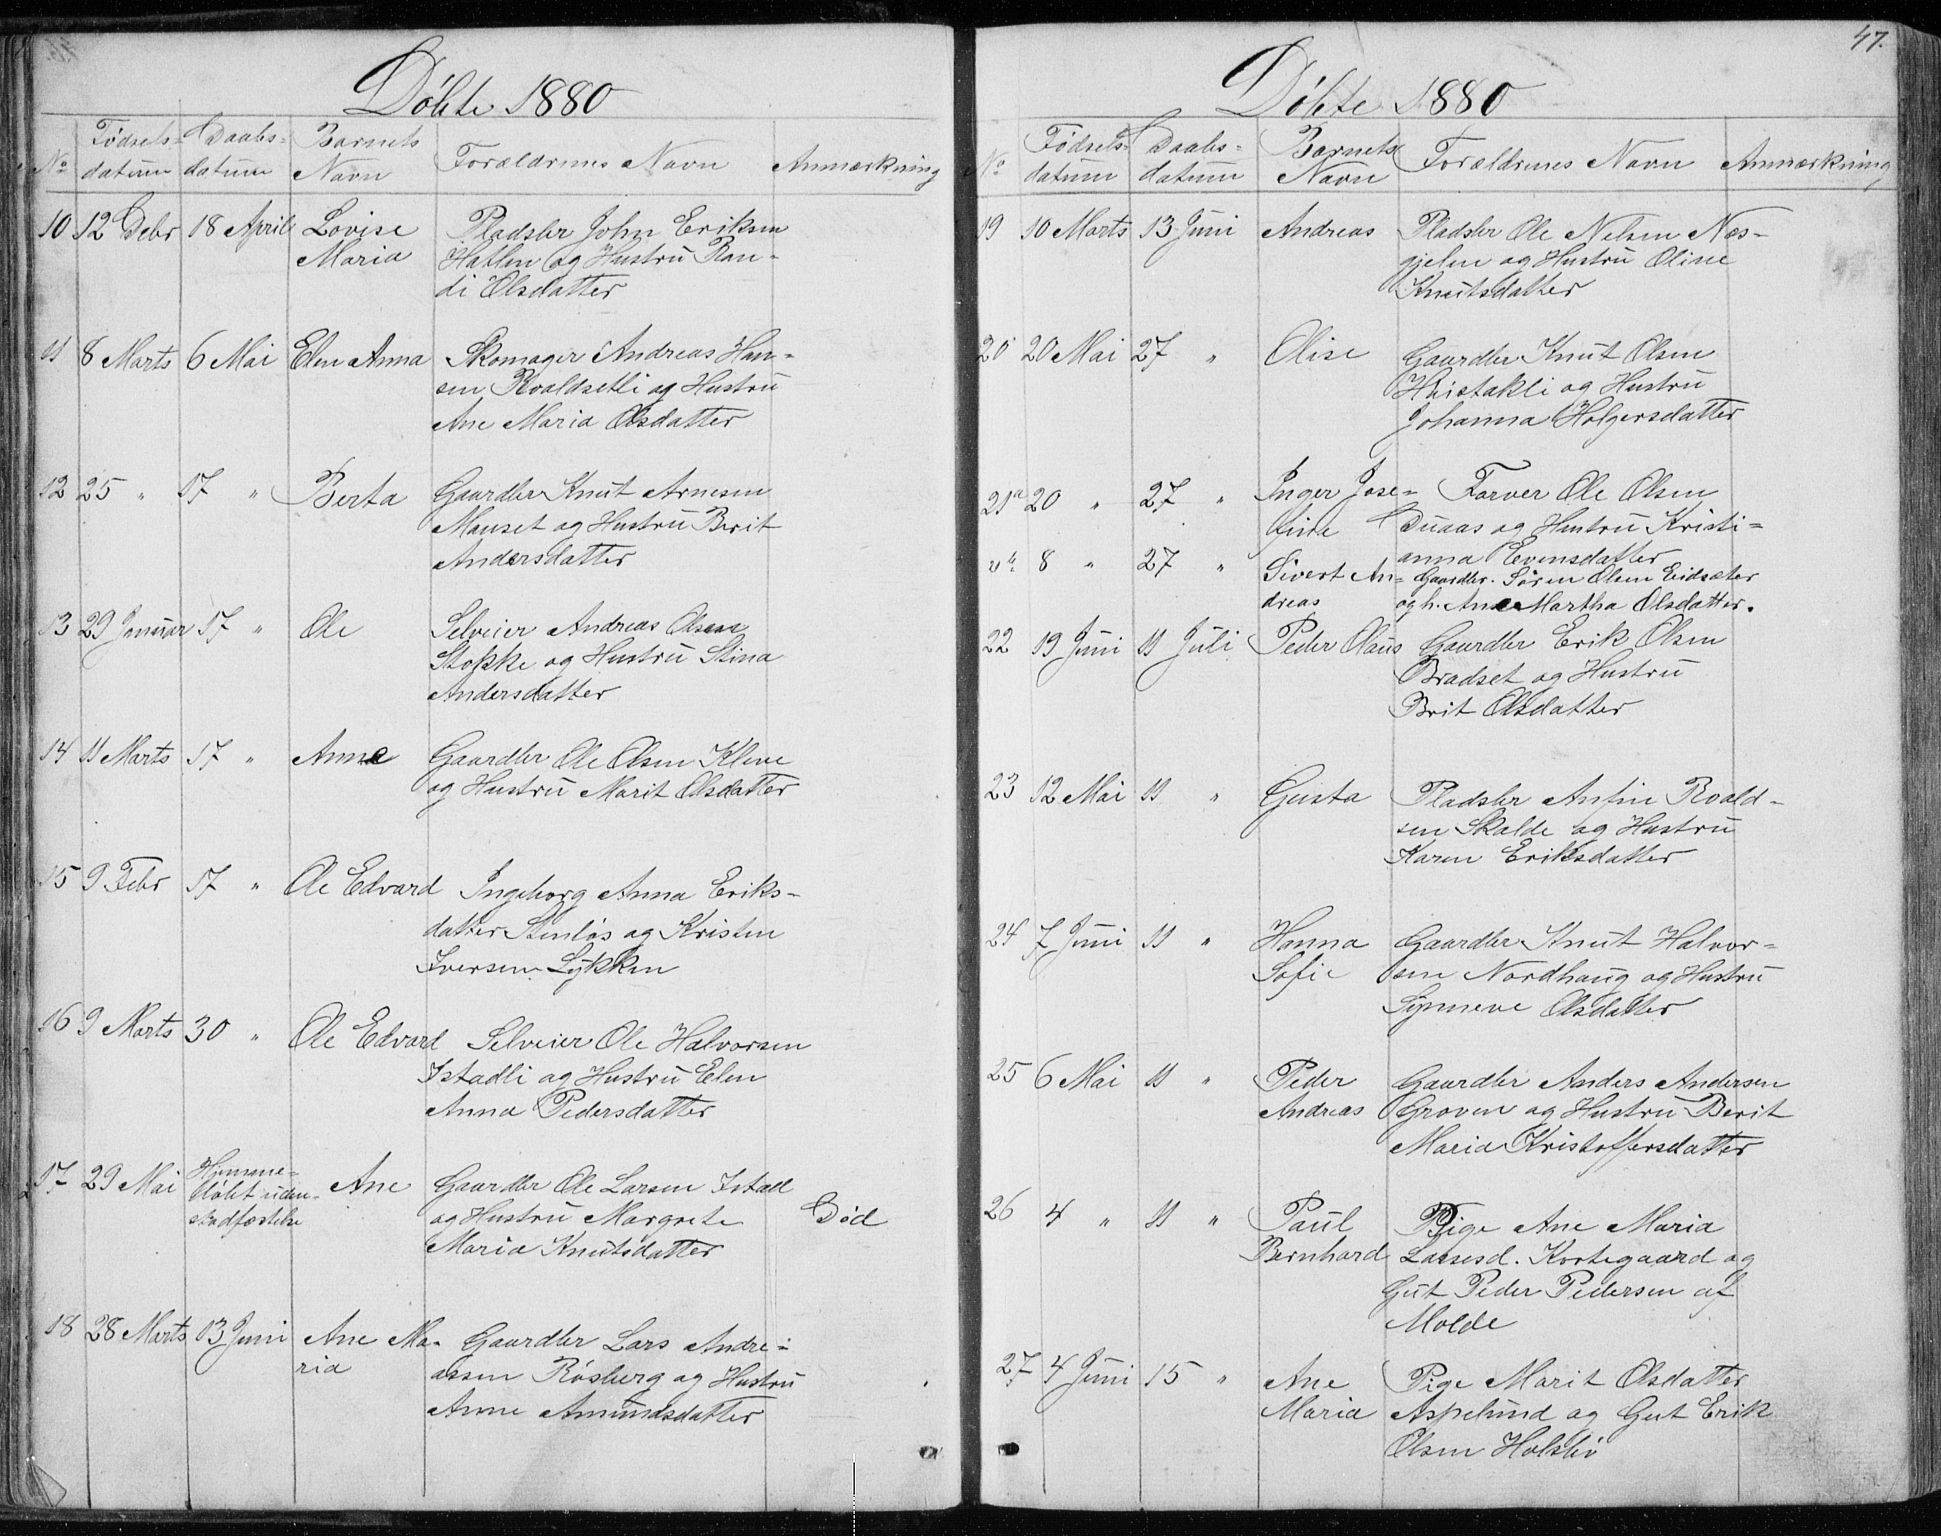 Døbte 1880
No Fødsels-datum Daabs-datum Barnets Navn Forældrenes Navn Anmærkning
10 12 Debr 18 April Lovise Pladsbr John Eriksen
Maria Hatlen og Hustru Ran-
di Olsdatter
11 8 Marts 6 Mai Elen Anna Skomager Andreas Han-
sen Roaldsetli og Hustru
Ane Maria Olsdatter
12 25 " 17 " Berta Gaardbr Knut Arnesen
Mauset og Hustru Berit
Andersdatter
13 29 Januar 17 " Ole Selveier Andreas Olsen
Stokke og Hustru Stina
Andersdatter
14 11 Marts 17 " Anne Gaardbr Ole Olsen Kleve
og Hustru Marit Olsdatter
15 9 Febr 17 " Ole Edvard Ingeborg Anna Eriks-
datter Stenløs og Kristen
Iversen Lykken
16 9 Marts 30 " Ole Edvard Selveier Ole Halvorsen
Istadli og Hustru Elen
Anna Pedersdatter
17 29 Mai Hjemme- Ane Gaardbr Ole Larsen Istad
døbt uden og Hustru Margrete Død
stadfæstelse Maria Knutsdatter
18 28 Marts 13 Juni Ane Ma- Gaardbr Lars Andre-
ria assen Røsberg og Hustru
Anne Amundsdatter
47.
Døbte 1880
No Fødsels-datum Daabs-datum Barnets Navn Forældrenes Navn Anmærkning
19 10 Marts 13 Juni Andreas Pladsbr Ole Nelsen Næs-
gjelen og Hustru Oline
Knutsdatter
20 20 Mai 27 " Olise Gaardbr Knut Olsen
Hustru
Johanna Holgersdatter
21a 20 " 27 " Inger Jose- Farver Ole Olsen
fine Duaas og Hustru Kristi-
anna Evensdatter
8 " 27 " Sivert An- Gaardbr. Søren Olsen Eidsæter
dreas og h. Ane Martha Olsdatter.
22 19 Juni 11 Juli Peder Olaus Gaardbr Erik Olsen
Bradset og Hustru
Brit Olsdatter
23 12 Mai 11 " Gusta Pladsbr Anfin Roald-
sen Skalde og Hustru
Karen Eriksdatter
24 7 Juni 11 " Hanna Gaardbr Knut Halvor-
Sofie sen Nordhaug og Hustru
Synneve Olsdatter
25 6 Mai 11 " Peder Gaardbr Anders Andersen
Andreas Groven og Hustru Berit
Maria Kristoffersdatter
26 4 " 11 " Paul Pige Ane Maria
Bernhard Larsesd. Kortegaard og
Gut Peder Pedersen af
Molde
27 4 Juni 15 " Ane Pige Marit Olsdatter
Maria Aspelund og Gut Erik
Olsen Holsbø